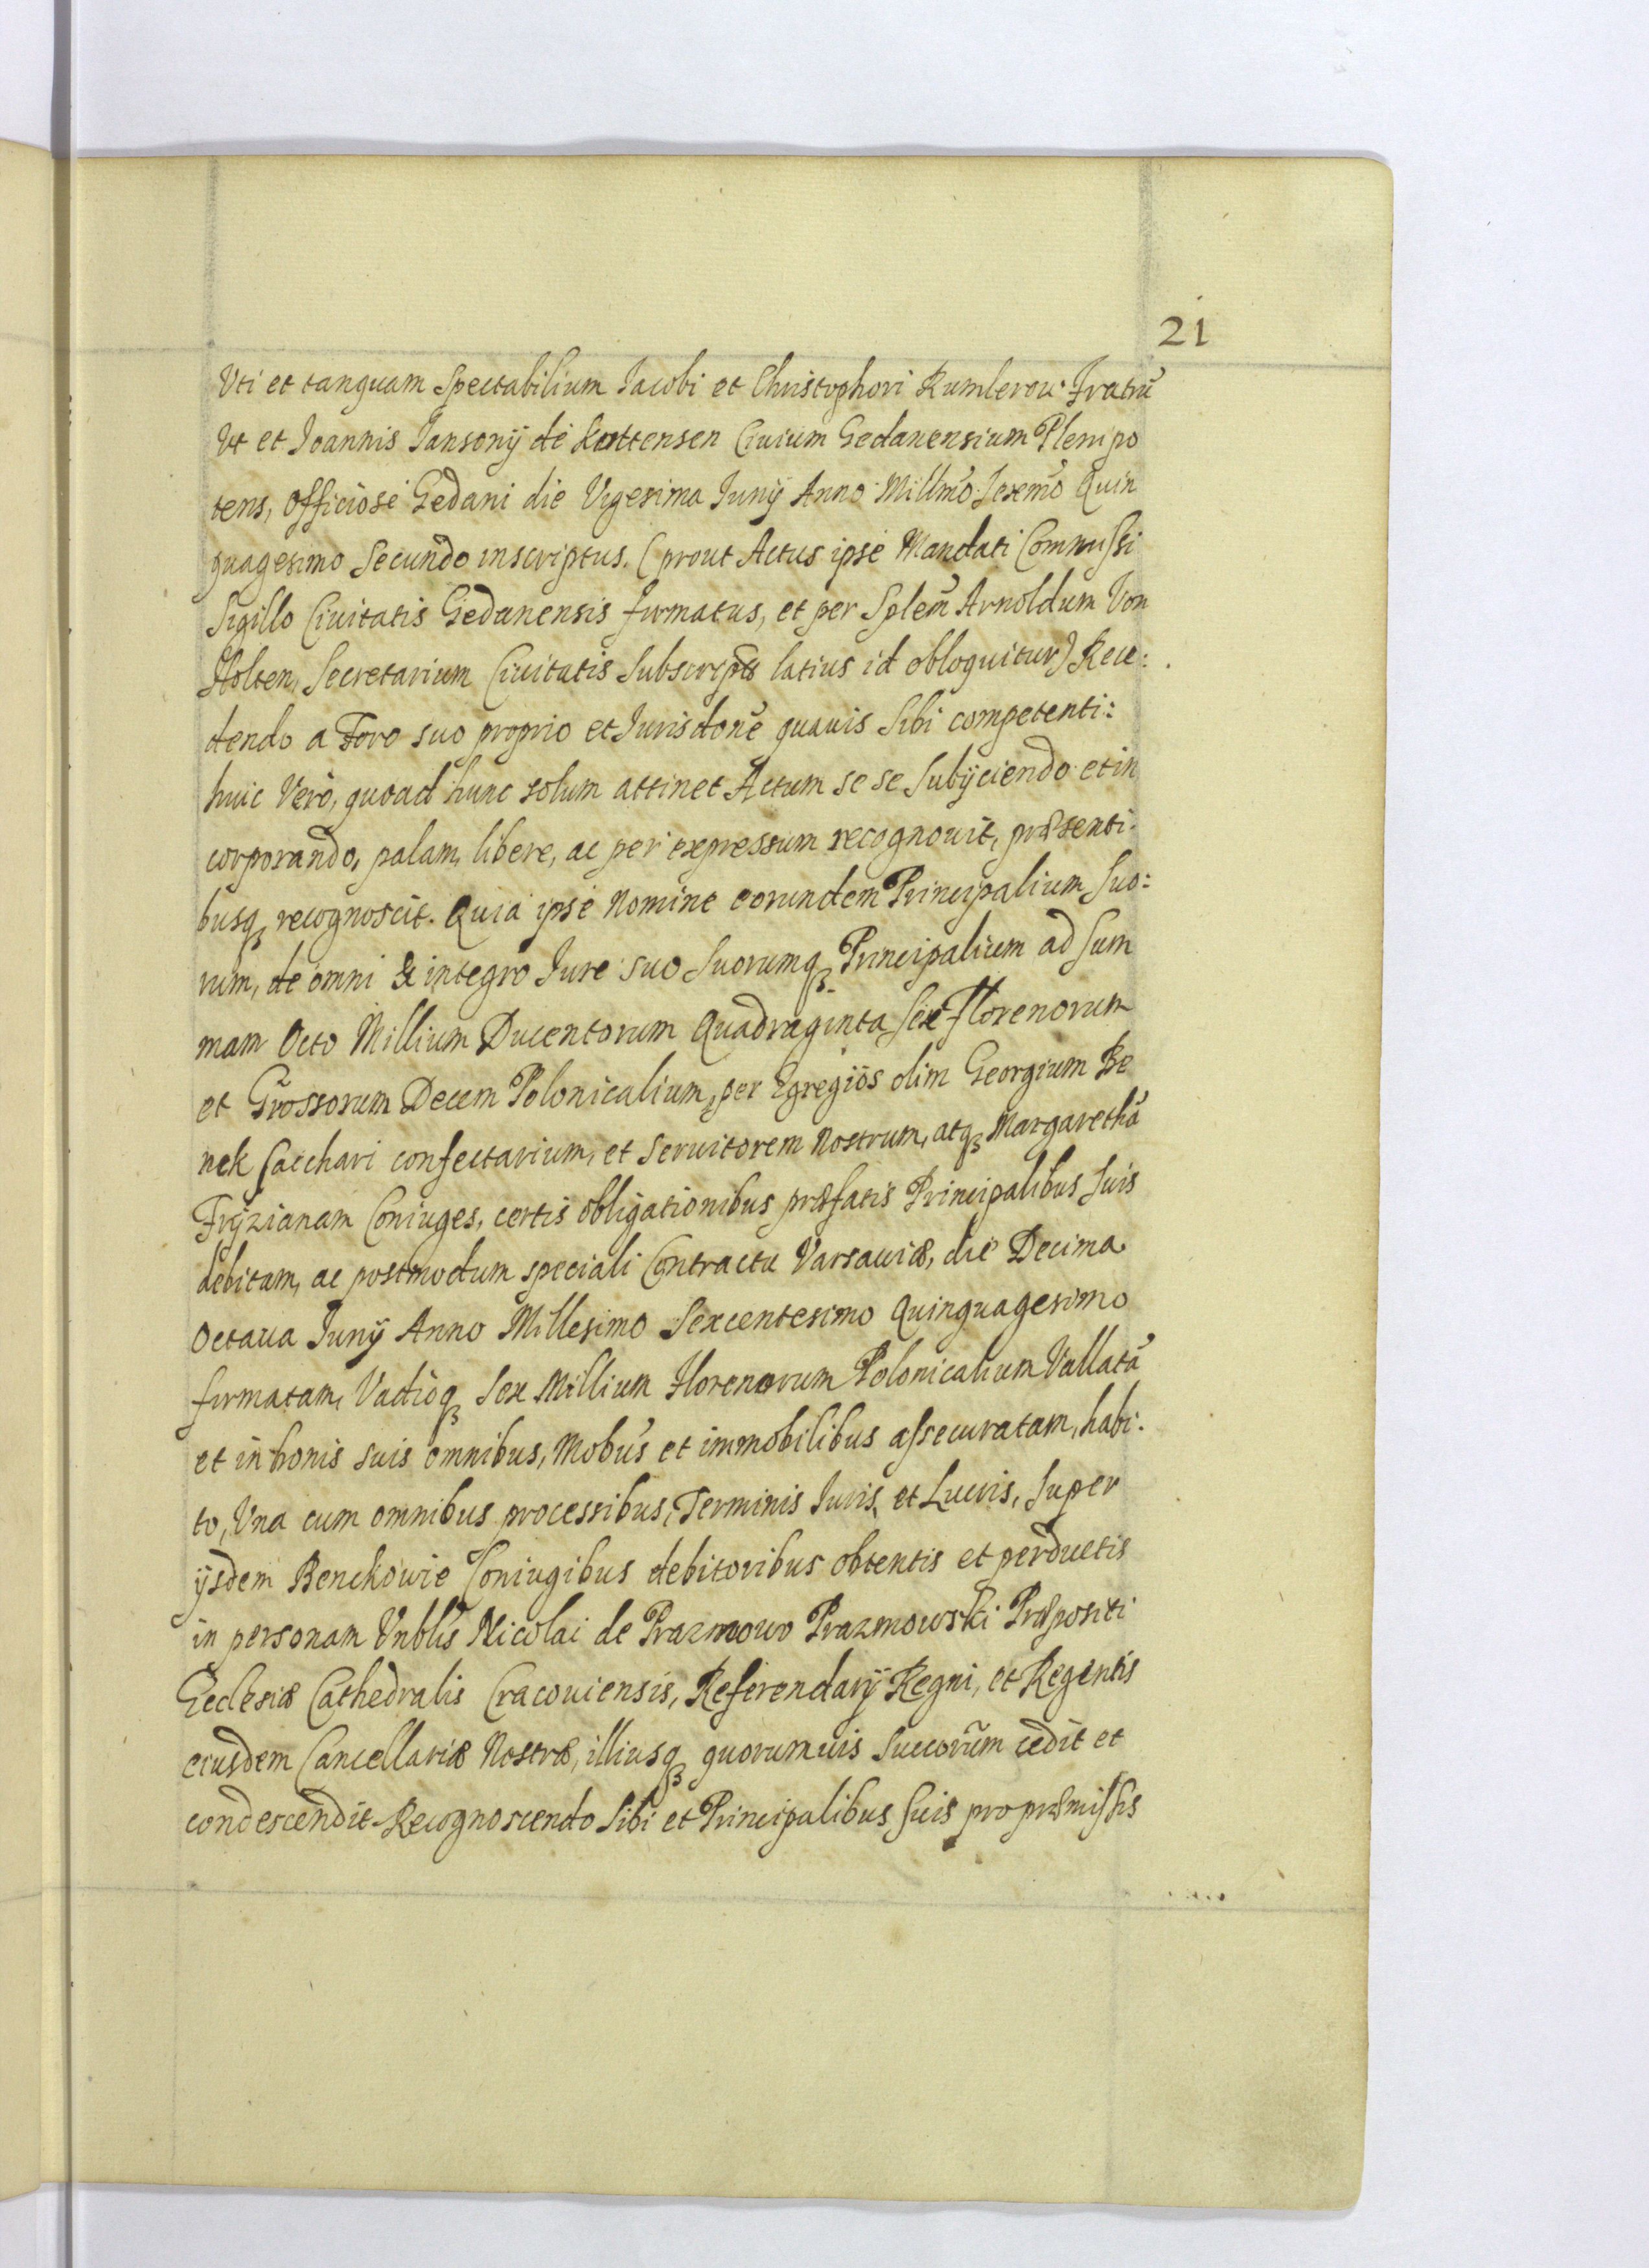 21
Vti et tanquam Spectabilium Iacobi et Christophori Rumlerow Fratrũ
Vt et Joannis Jansonÿ de Rottensen Ciuium Gedanensium Plenipo
tens, officiose Gedani die Vigesima Junÿ Anno Millm̃o Sexem̃o Quin
quagesimo Secundo inscriptus. (prout Actus ipse Mandati Commissi
Sigillo Ciuitatis Gedanensis firmatus, et per Splem̃ Arnoldum Von
Holten, Secretarium Ciuitatis Subscript9 latius id obloquitur) Rece:
dendo a Foro suo proprio et Jurisdone̅ quauis Sibi competenti:
huic Verò, quoad hunc solum attinet Actum se se Subÿciendo et in
corporando, palam, libere, ac per expressum recognouit, præsenti.
busqꝫ recognoscit. Quia ipse Nomine eorundem Principalium Suo:
rum, de omni & integro Jure suo Suorumqꝫ Principalium ad Sum
mam Octo Millium Ducentorum Quadraginta Sex Florenorum
et Grossorum Decem Polonicalium, per Egregios olim Georgium Be
nek Sacchari confectarium, et Seruitorem Nostrum, atqꝫ Margarethã
Frÿzianam Coniuges, certis obligationibus præfatis Principalibus Suis
debitam, ac postmodum speciali Contractu Varsauiæ, die Decima
Octaua Junÿ Anno Millesimo Sexcentesimo Quinquagesimo
firmatam, Vadioqꝫ Sex Millium Florenorum Polonicalium Vallatã
et in bonis suis omnibus, Mobũs et immobilibus assecuratam, habi.
to, Vna cum omnibus processibus, Terminis Iuris, et Lucris, Super
ÿsdem Benekowie Coniugibus debitoribus obtentis et perductis
in personam Vnblĩs Nicolai de Prazmowo Prazmowski Præpositi
Ecclesiæ Cathedralis Cracouiensis, Referendarÿ Regni, et Regentis
eiusdem Cancellariæ Nostræ, illiusqꝫ quorumuis Succorũm cedit et
condescendit Recognoscendo Sibi et Principalibus Suis pro præmissis